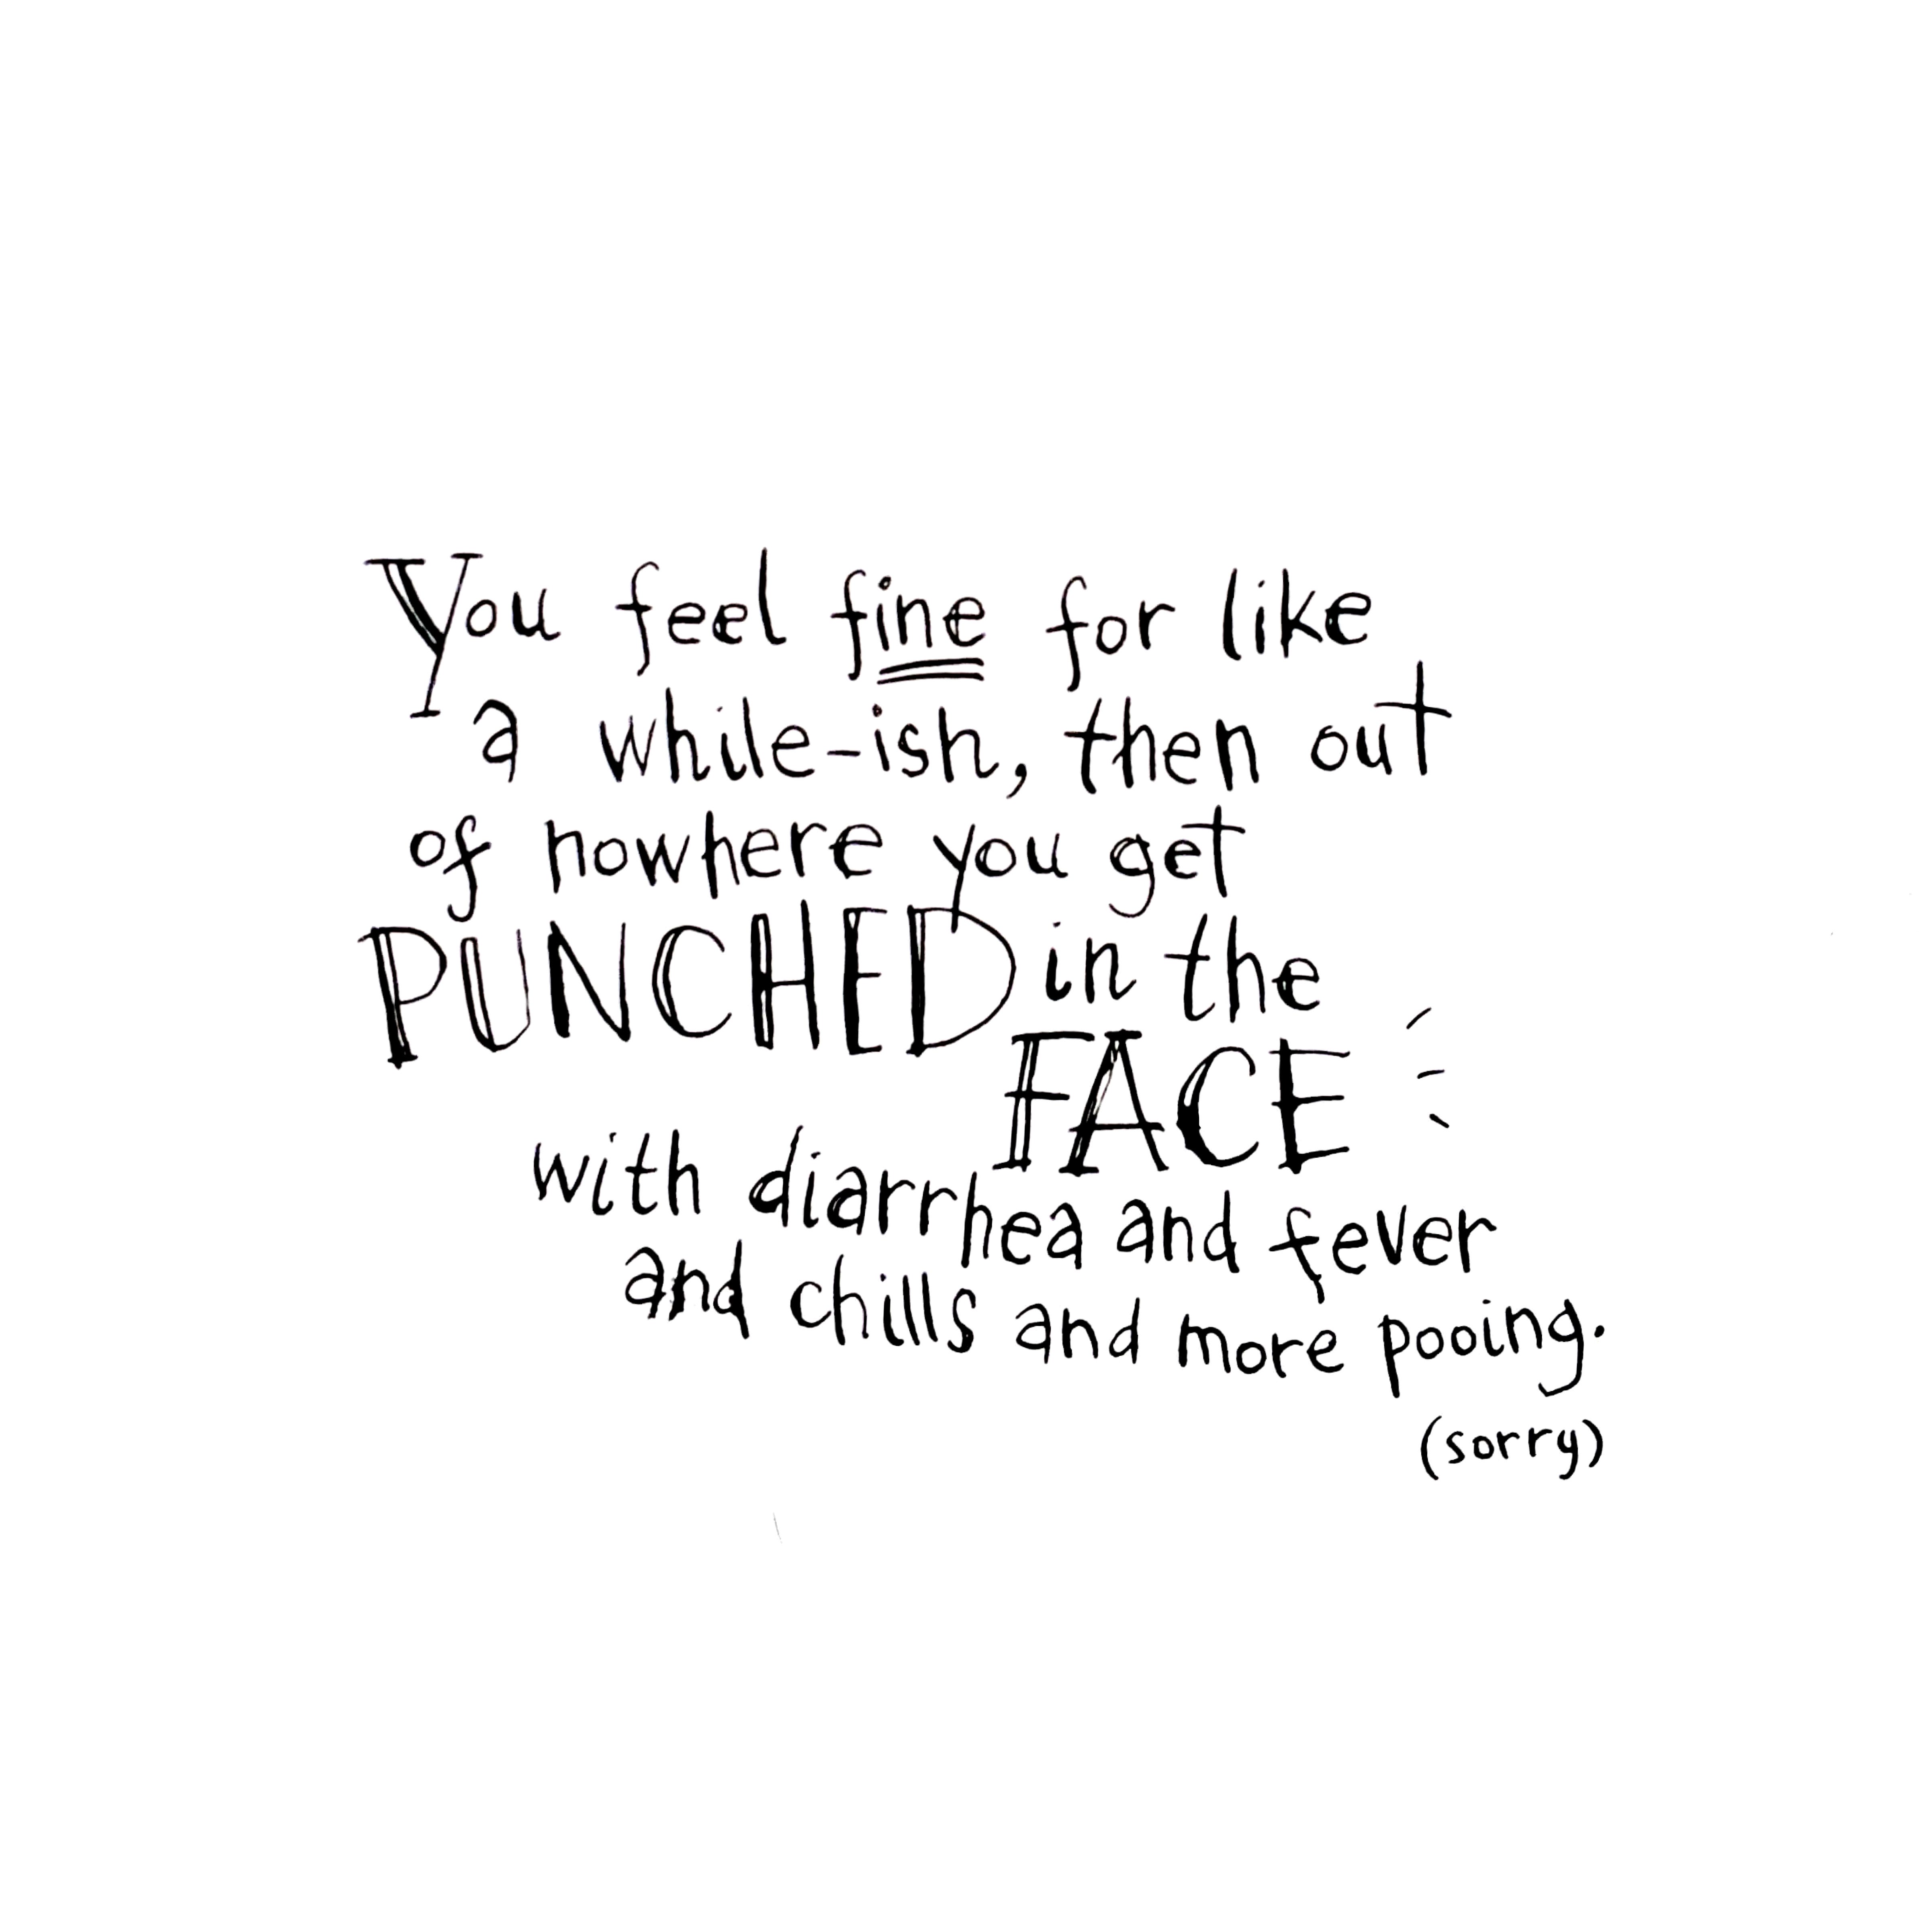 You feel fine for like
a while-ish, then out
of nowhere you get
PUNCHED in the
FACE
with diarrhea and fever
and chills and more pooing.
(sorry)